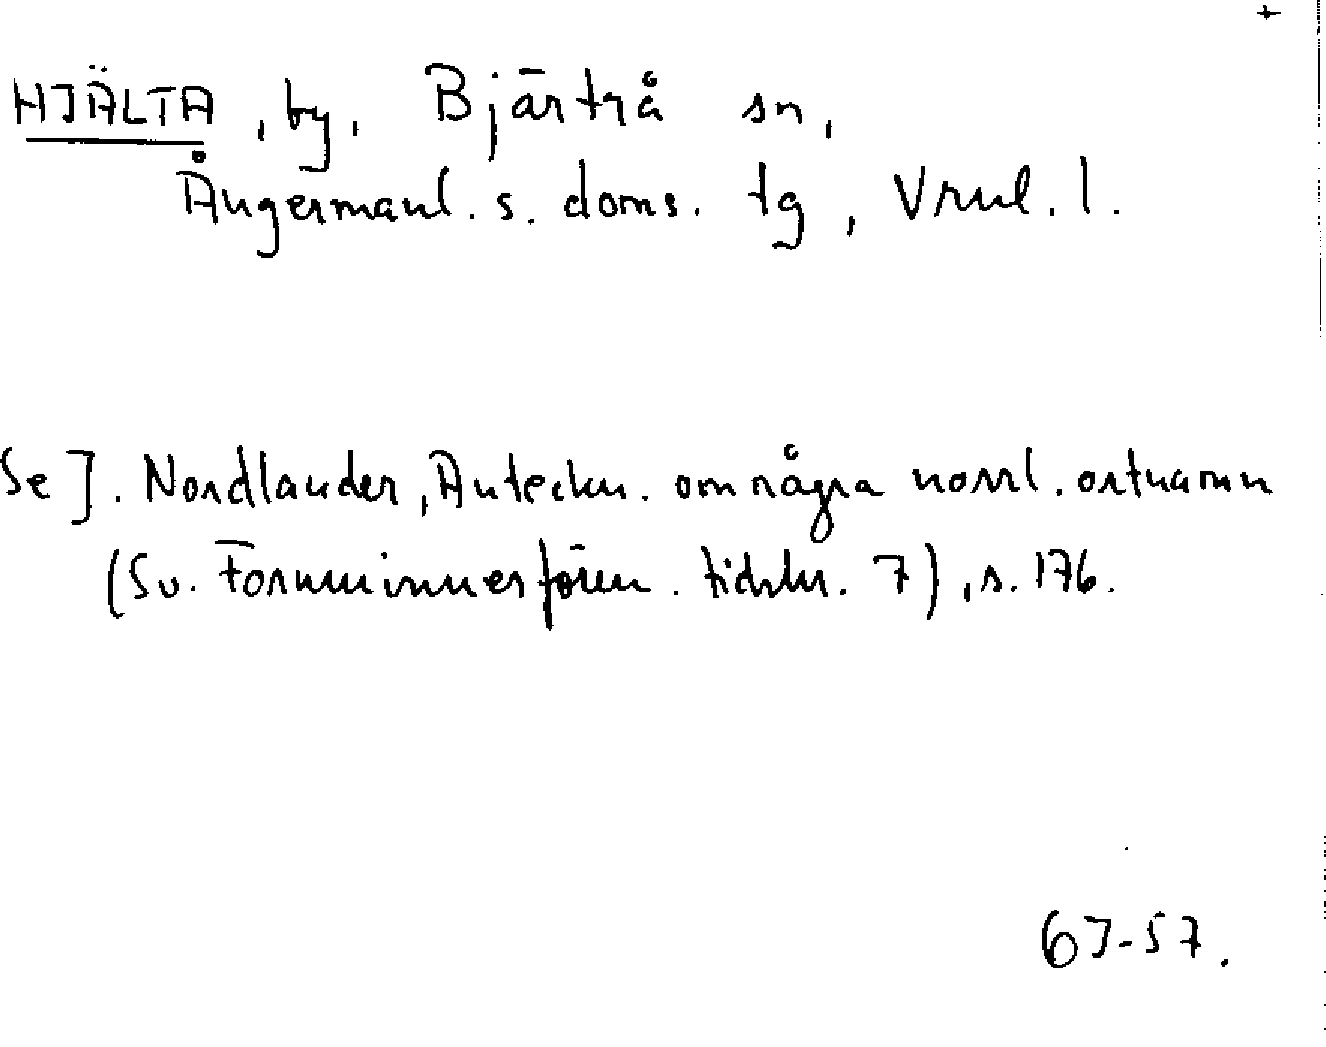 +
HJÄLTA, by, Bjärtrå sn,
Ångermanl. s. doms. tg, Vrnl. l.
Se J. Nordlander, Anteckn. om några norrl. ortnamn
(Sv. Fornminnesfören. tidskr. 7), s. 176.
GJ-57.